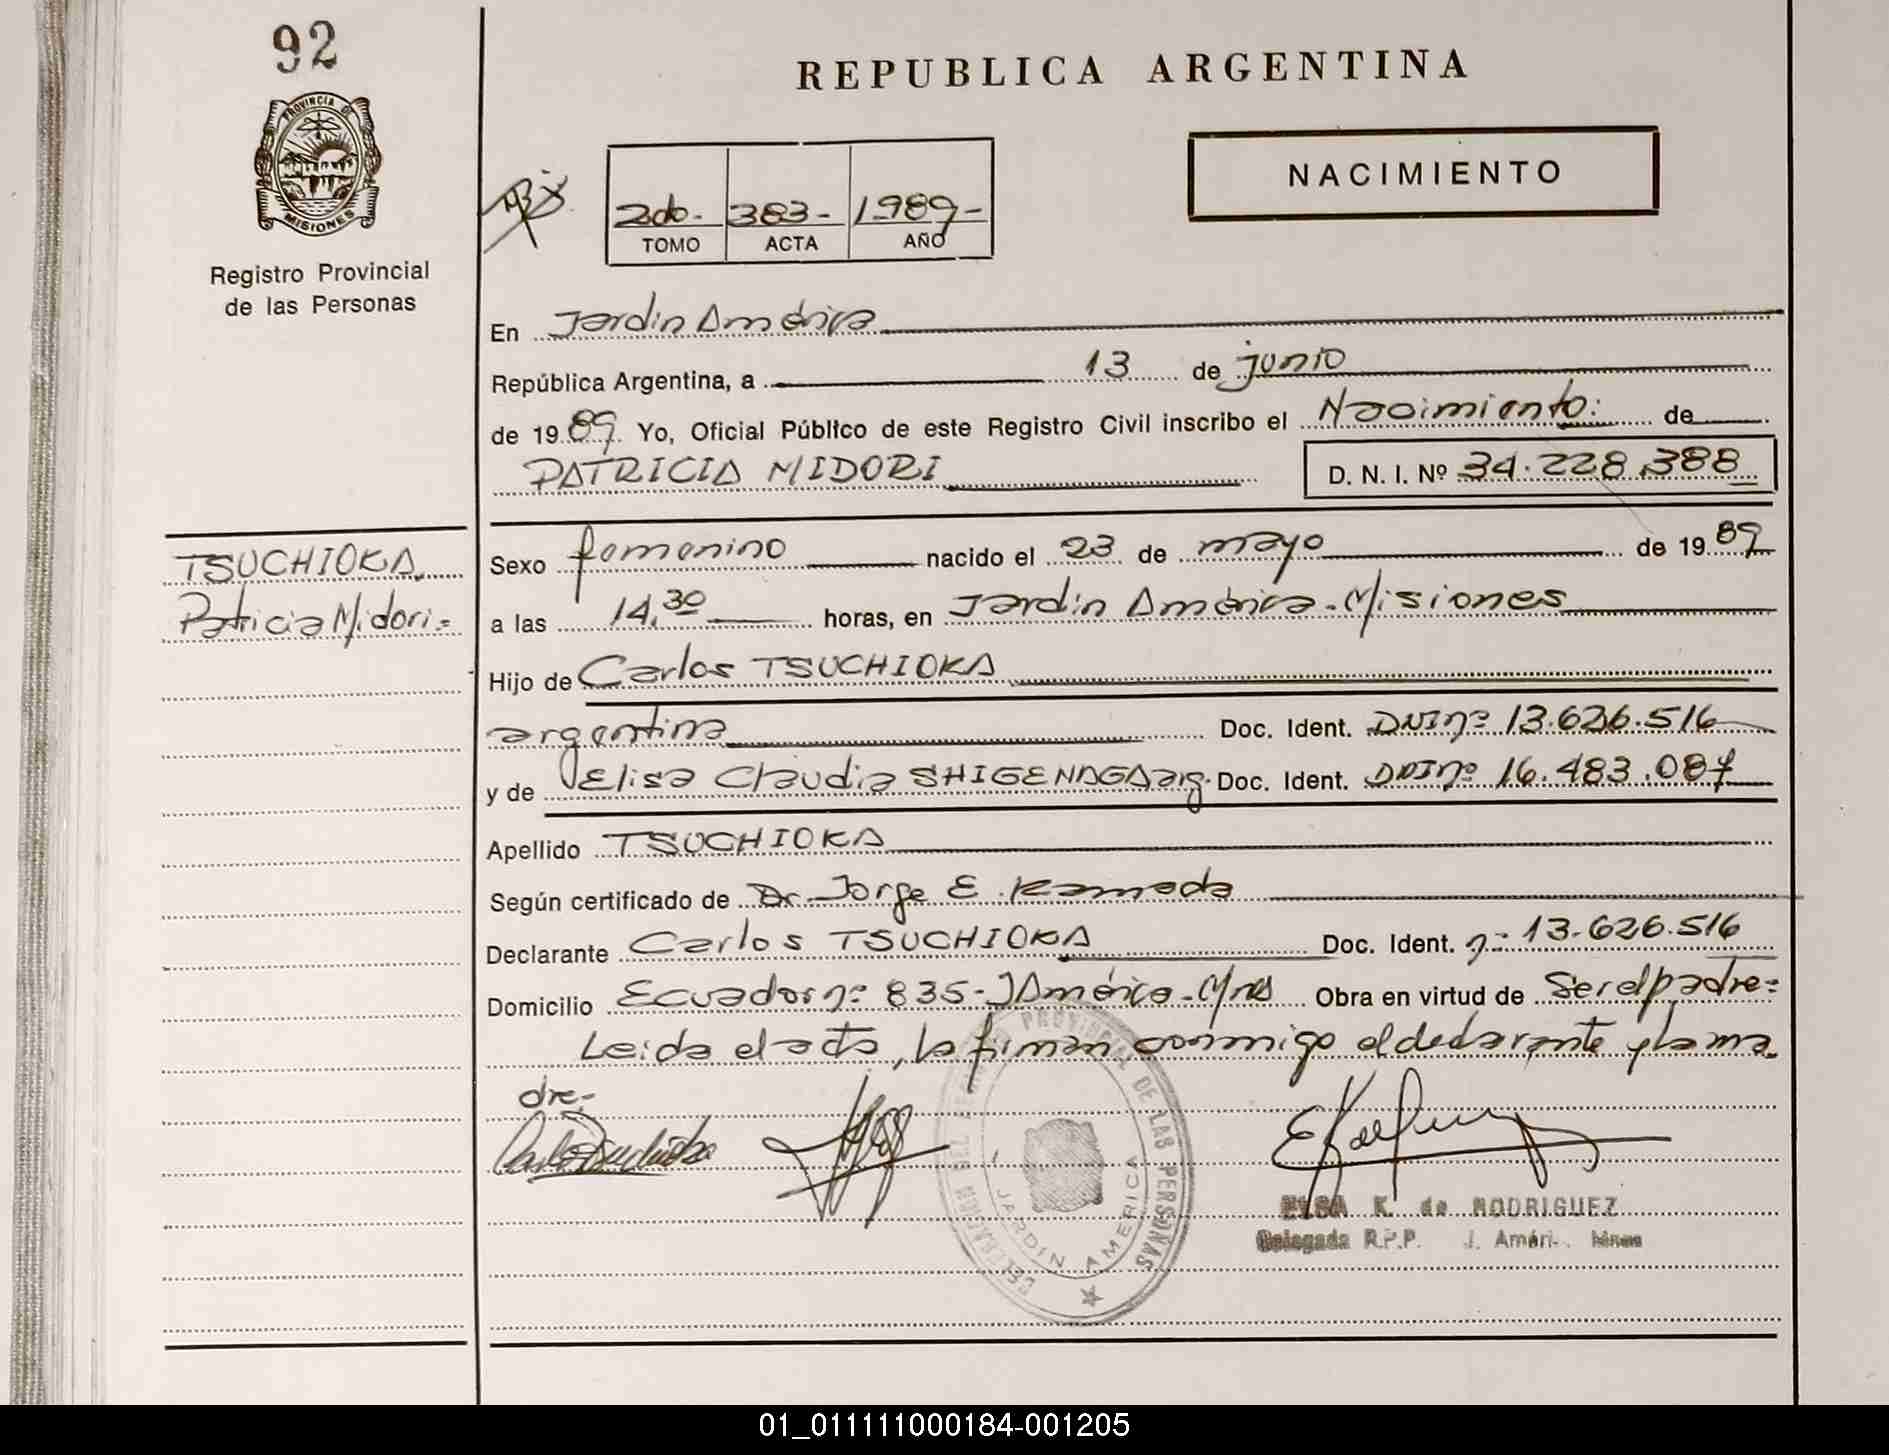 92
REPUBLICA ARGENTINA
PROVINCIA DE
MISIONES
Registro Provincial
de las Personas
2do.- 383- 1989-
TOMO ACTA AÑO
NACIMIENTO
En Jardin América
República Argentina, a 13 de junio
de 1989 Yo, Oficial Público de este Registro Civil inscribo el Nacimiento: de
PATRICIA MIDORI D. N. I. Nº 34.228.388
TSUCHIOKA
Patricia Midori=
Sexo femenino nacido el 23 de mayo de 1989
a las 14,30 horas, en Jardin América-Misiones
Hijo de Carlos TSUCHIOKA
argentina Doc. Ident. DNI nº 13.626.516
y de Elisa Claudia SHIGENAGA arg. Doc. Ident. DNI nº 16.483.087
Apellido TSUCHIOKA
Según certificado de Dr. Jorge E. Kamada
Declarante Carlos TSUCHIOKA Doc. Ident. nº 13.626.516
Domicilio Ecuador nº 835-J América-Mnes Obra en virtud de Ser el padre=
Leida el acta, la firman conmigo el declarante y la ma-
dre-
PROVINCIAL DE LAS PERSONAS
JARDIN AMERICA
ELSA K. de RODRIGUEZ
Delegada R.P.P. J. Améri
01_011111000184-001205